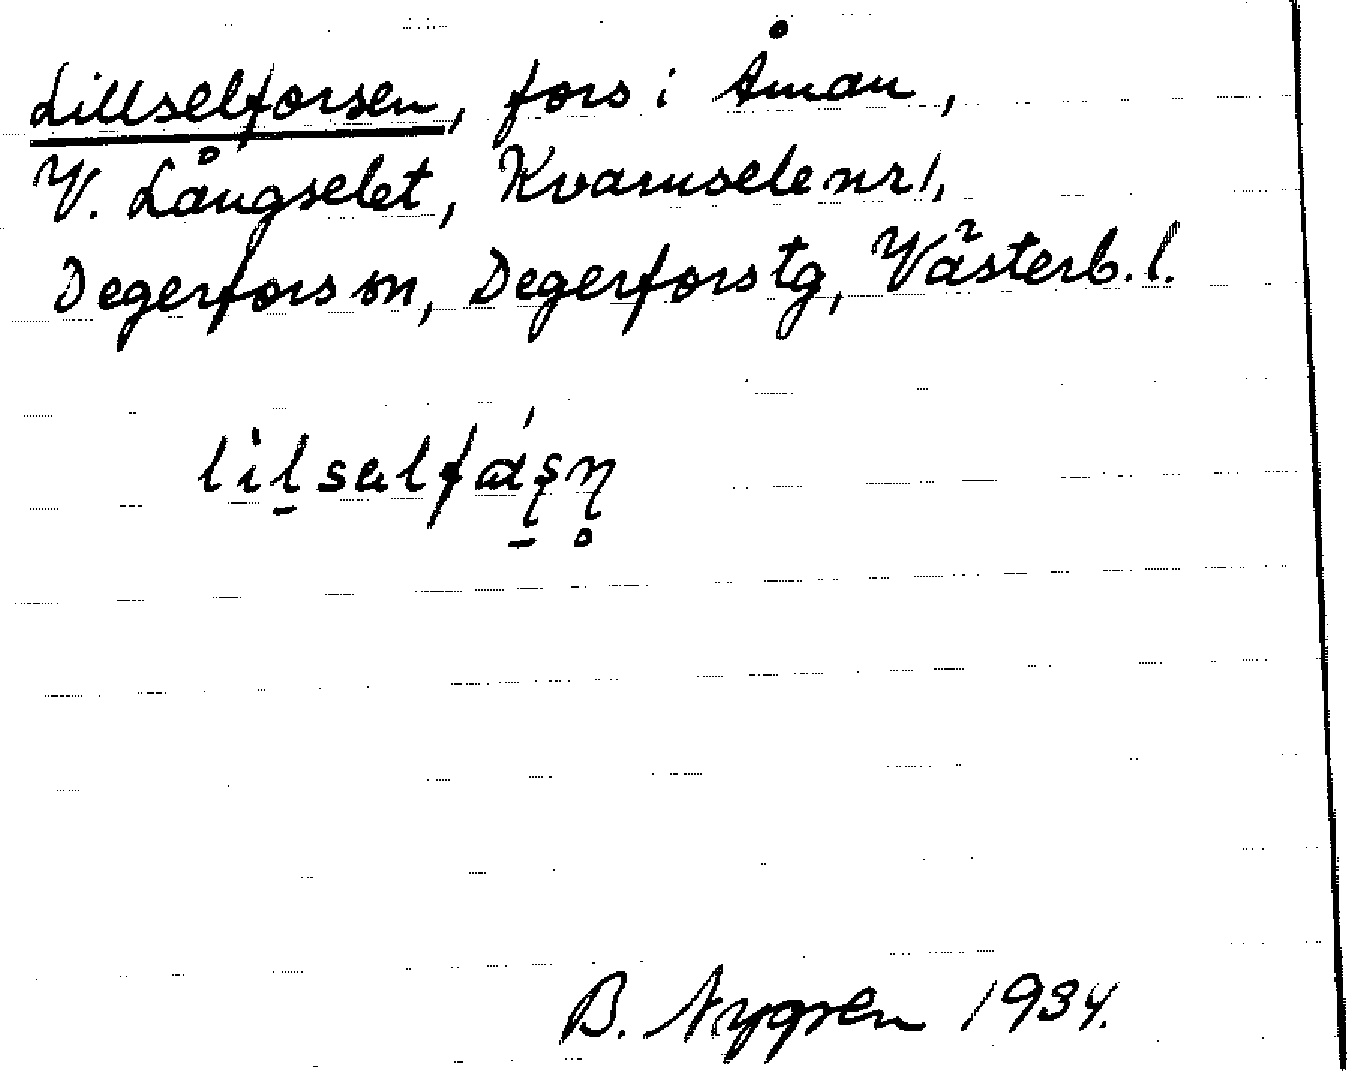 Lillselforsen, fors i Åman,
V. Långselet, Kvarnsele nr 1,
Degerfors sn, Degerfors tg, Västerb. l.
B. Nygren 1934.